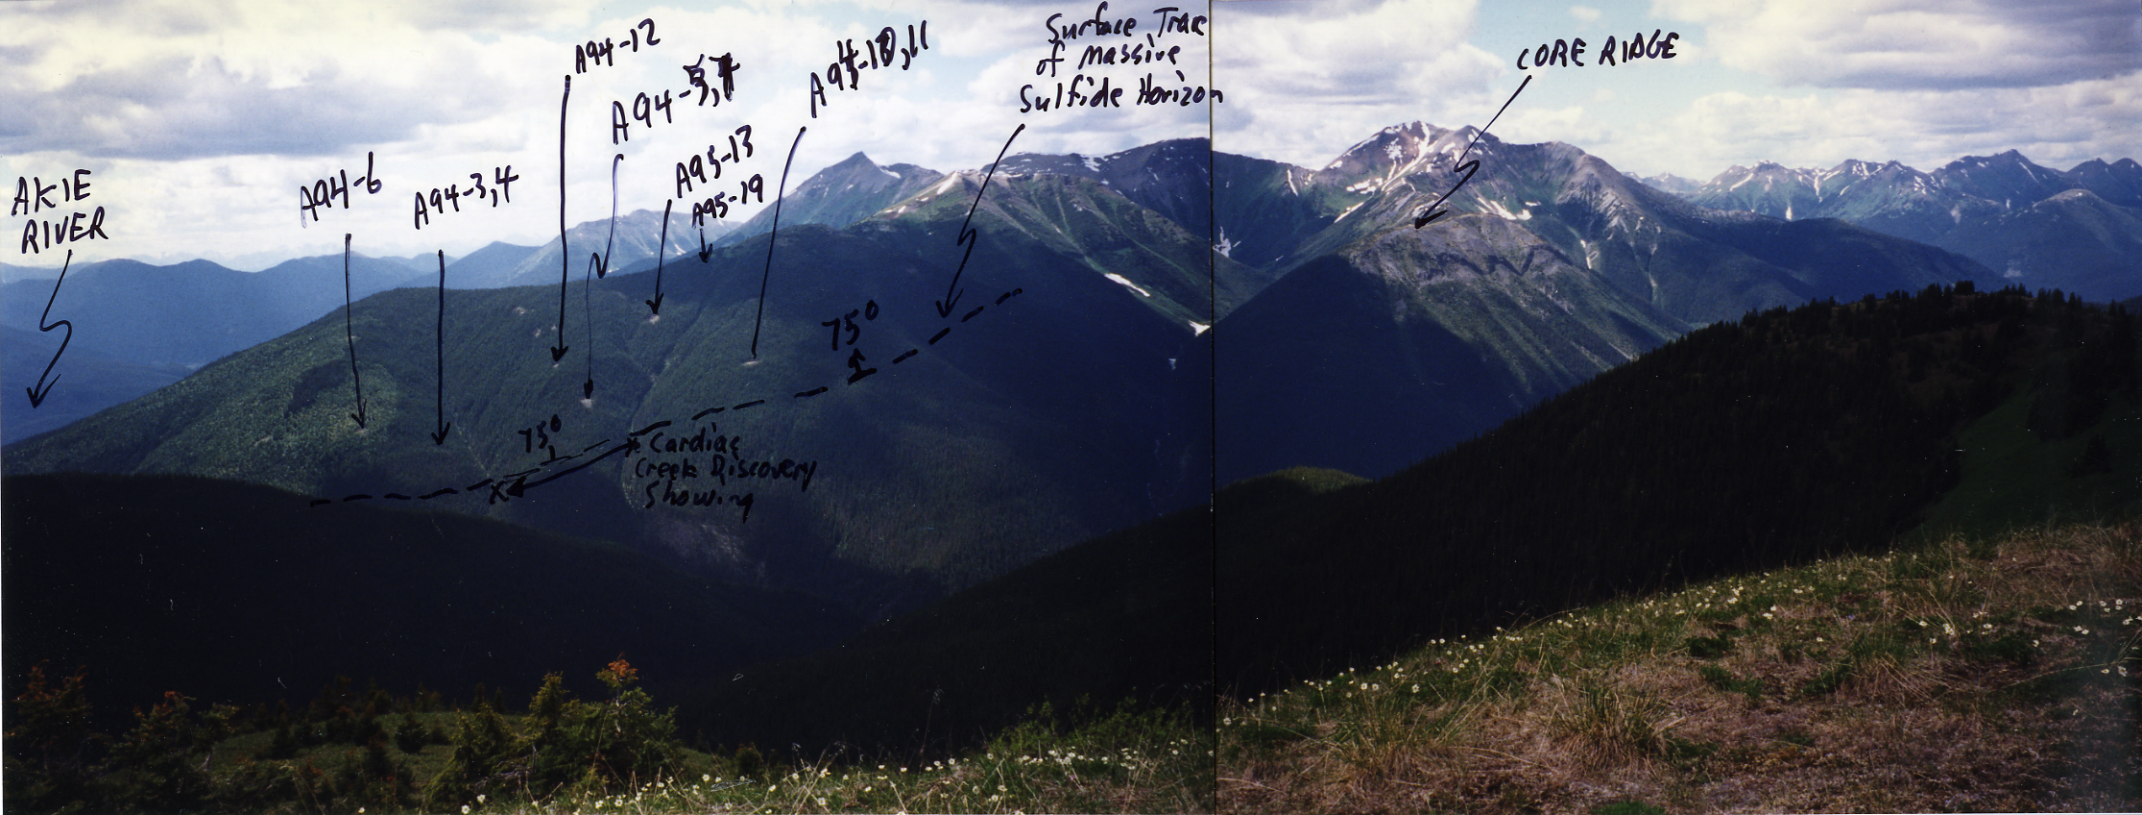 AKIE
RIVER
A94-6
A94-3,4
A94-12
A94-
A95-13
A95-19
,11
Surface Trace
of Massive
Sulfide Horizon
CORE RIDGE
75°
75°
Cardiac
Creek Discovery
Showing